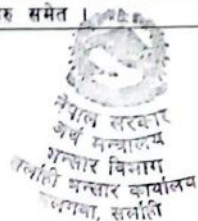 रु समेत ।
नेपाल सरकार
अर्थ मन्त्रालय
भन्सार विभाग
सर्लाही भन्सार कार्यालय
मलंगवा, सर्लाही